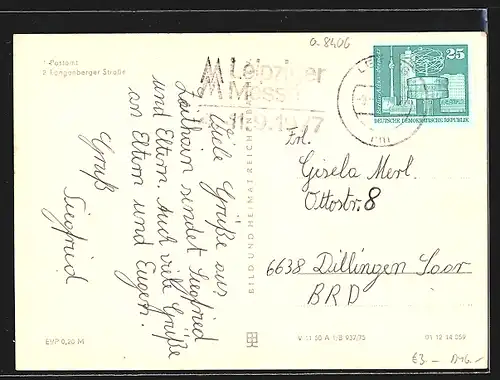 a-8406
1 Postamt
2 Langenberger Straße
Leipziger
Messe
4.-11.9.1977
25
DEUTSCHE DEMOKRATISCHE REPUBLIK
Viele Grüße aus
Zeithain sendet Siegfried
und Eltern. Auch viele Grüße
an Eltern und Eugen.
Gruß
Siegfried
BILD UND HEIMAT REICHENBACH
Frl.
Gisela Merl.
Ottostr. 8
6638 Dillingen Saar
BRD
EVP 0,20 M
V 11 50 A 1/B 937/75
01 12 14 059
€3-